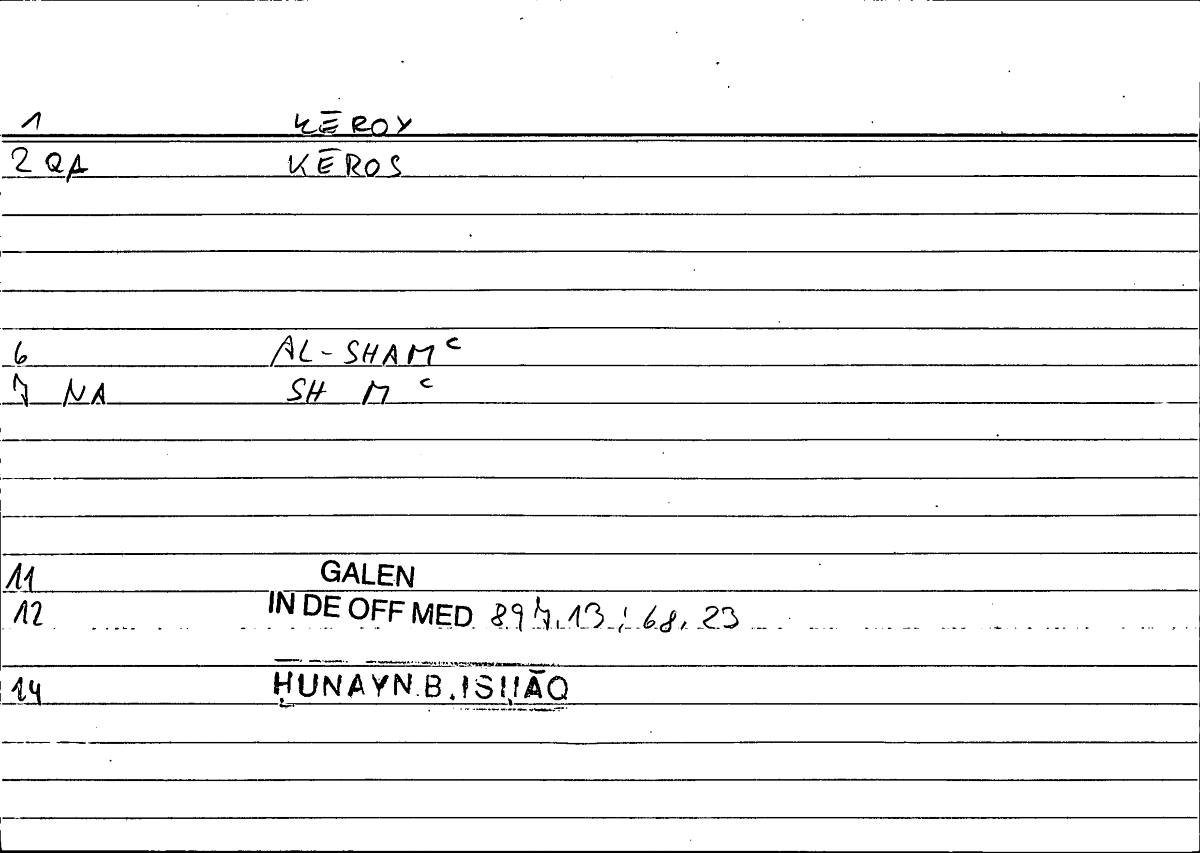 1 KĒROY
2 QA KĒROS
6 AL-SHAM ͨ
7 NA SH M ͨ
11 GALEN
12 IN DE OFF MED 897.13 ; 68.23
14 ḤUNAYN B. ISḤĀQ